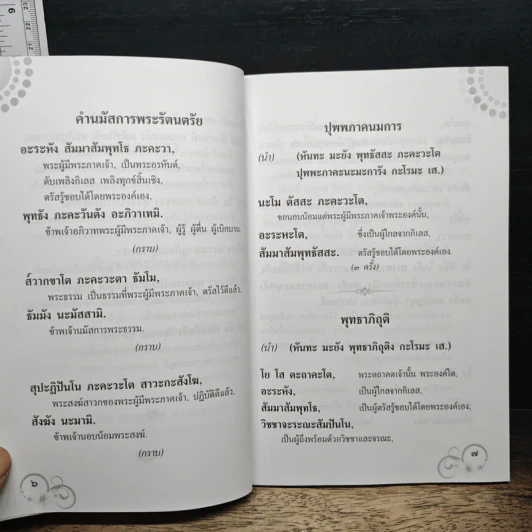 คำนมัสการพระรัตนตรัย
อะระหัง สัมมาสัมพุทโธ ภะคะวา,
พระผู้มีพระภาคเจ้า, เป็นพระอรหันต์,
ดับเพลิงกิเลส เพลิงทุกข์สิ้นเชิง,
ตรัสรู้ชอบได้โดยพระองค์เอง,
พุทธัง ภะคะวันตัง อะภิวาเทมิ.
ข้าพเจ้าอภิวาทพระผู้มีพระภาคเจ้า, ผู้รู้ ผู้ตื่น ผู้เบิกบาน.
(กราบ)
ส๎วากขาโต ภะคะวะตา ธัมโม,
พระธรรม เป็นธรรมที่พระผู้มีพระภาคเจ้า, ตรัสไว้ดีแล้ว,
ธัมมัง นะมัสสามิ.
ข้าพเจ้านมัสการพระธรรม.
(กราบ)
สุปะฏิปันโน ภะคะวะโต สาวะกะสังโฆ,
พระสงฆ์สาวกของพระผู้มีพระภาคเจ้า, ปฏิบัติดีแล้ว,
สังฆัง นะมามิ.
ข้าพเจ้านอบน้อมพระสงฆ์.
(กราบ)
๖
ปุพพภาคนมการ
(นำ) (หันทะ มะยัง พุทธัสสะ ภะคะวะโต
ปุพพะภาคะนะมะการัง กะโรมะ เส.)
นะโม ตัสสะ ภะคะวะโต,
ขอนอบน้อมแด่พระผู้มีพระภาคเจ้าพระองค์นั้น,
อะระหะโต, ซึ่งเป็นผู้ไกลจากกิเลส,
สัมมาสัมพุทธัสสะ. ตรัสรู้ชอบได้โดยพระองค์เอง.
(๓ ครั้ง)
พุทธาภิถุติ
(นำ) (หันทะ มะยัง พุทธาภิถุติง กะโรมะ เส.)
โย โส ตะถาคะโต, พระตถาคตเจ้านั้น พระองค์ใด,
อะระหัง, เป็นผู้ไกลจากกิเลส,
สัมมาสัมพุทโธ, เป็นผู้ตรัสรู้ชอบได้โดยพระองค์เอง,
วิชชาจะระณะสัมปันโน,
เป็นผู้ถึงพร้อมด้วยวิชชาและจรณะ,
๗